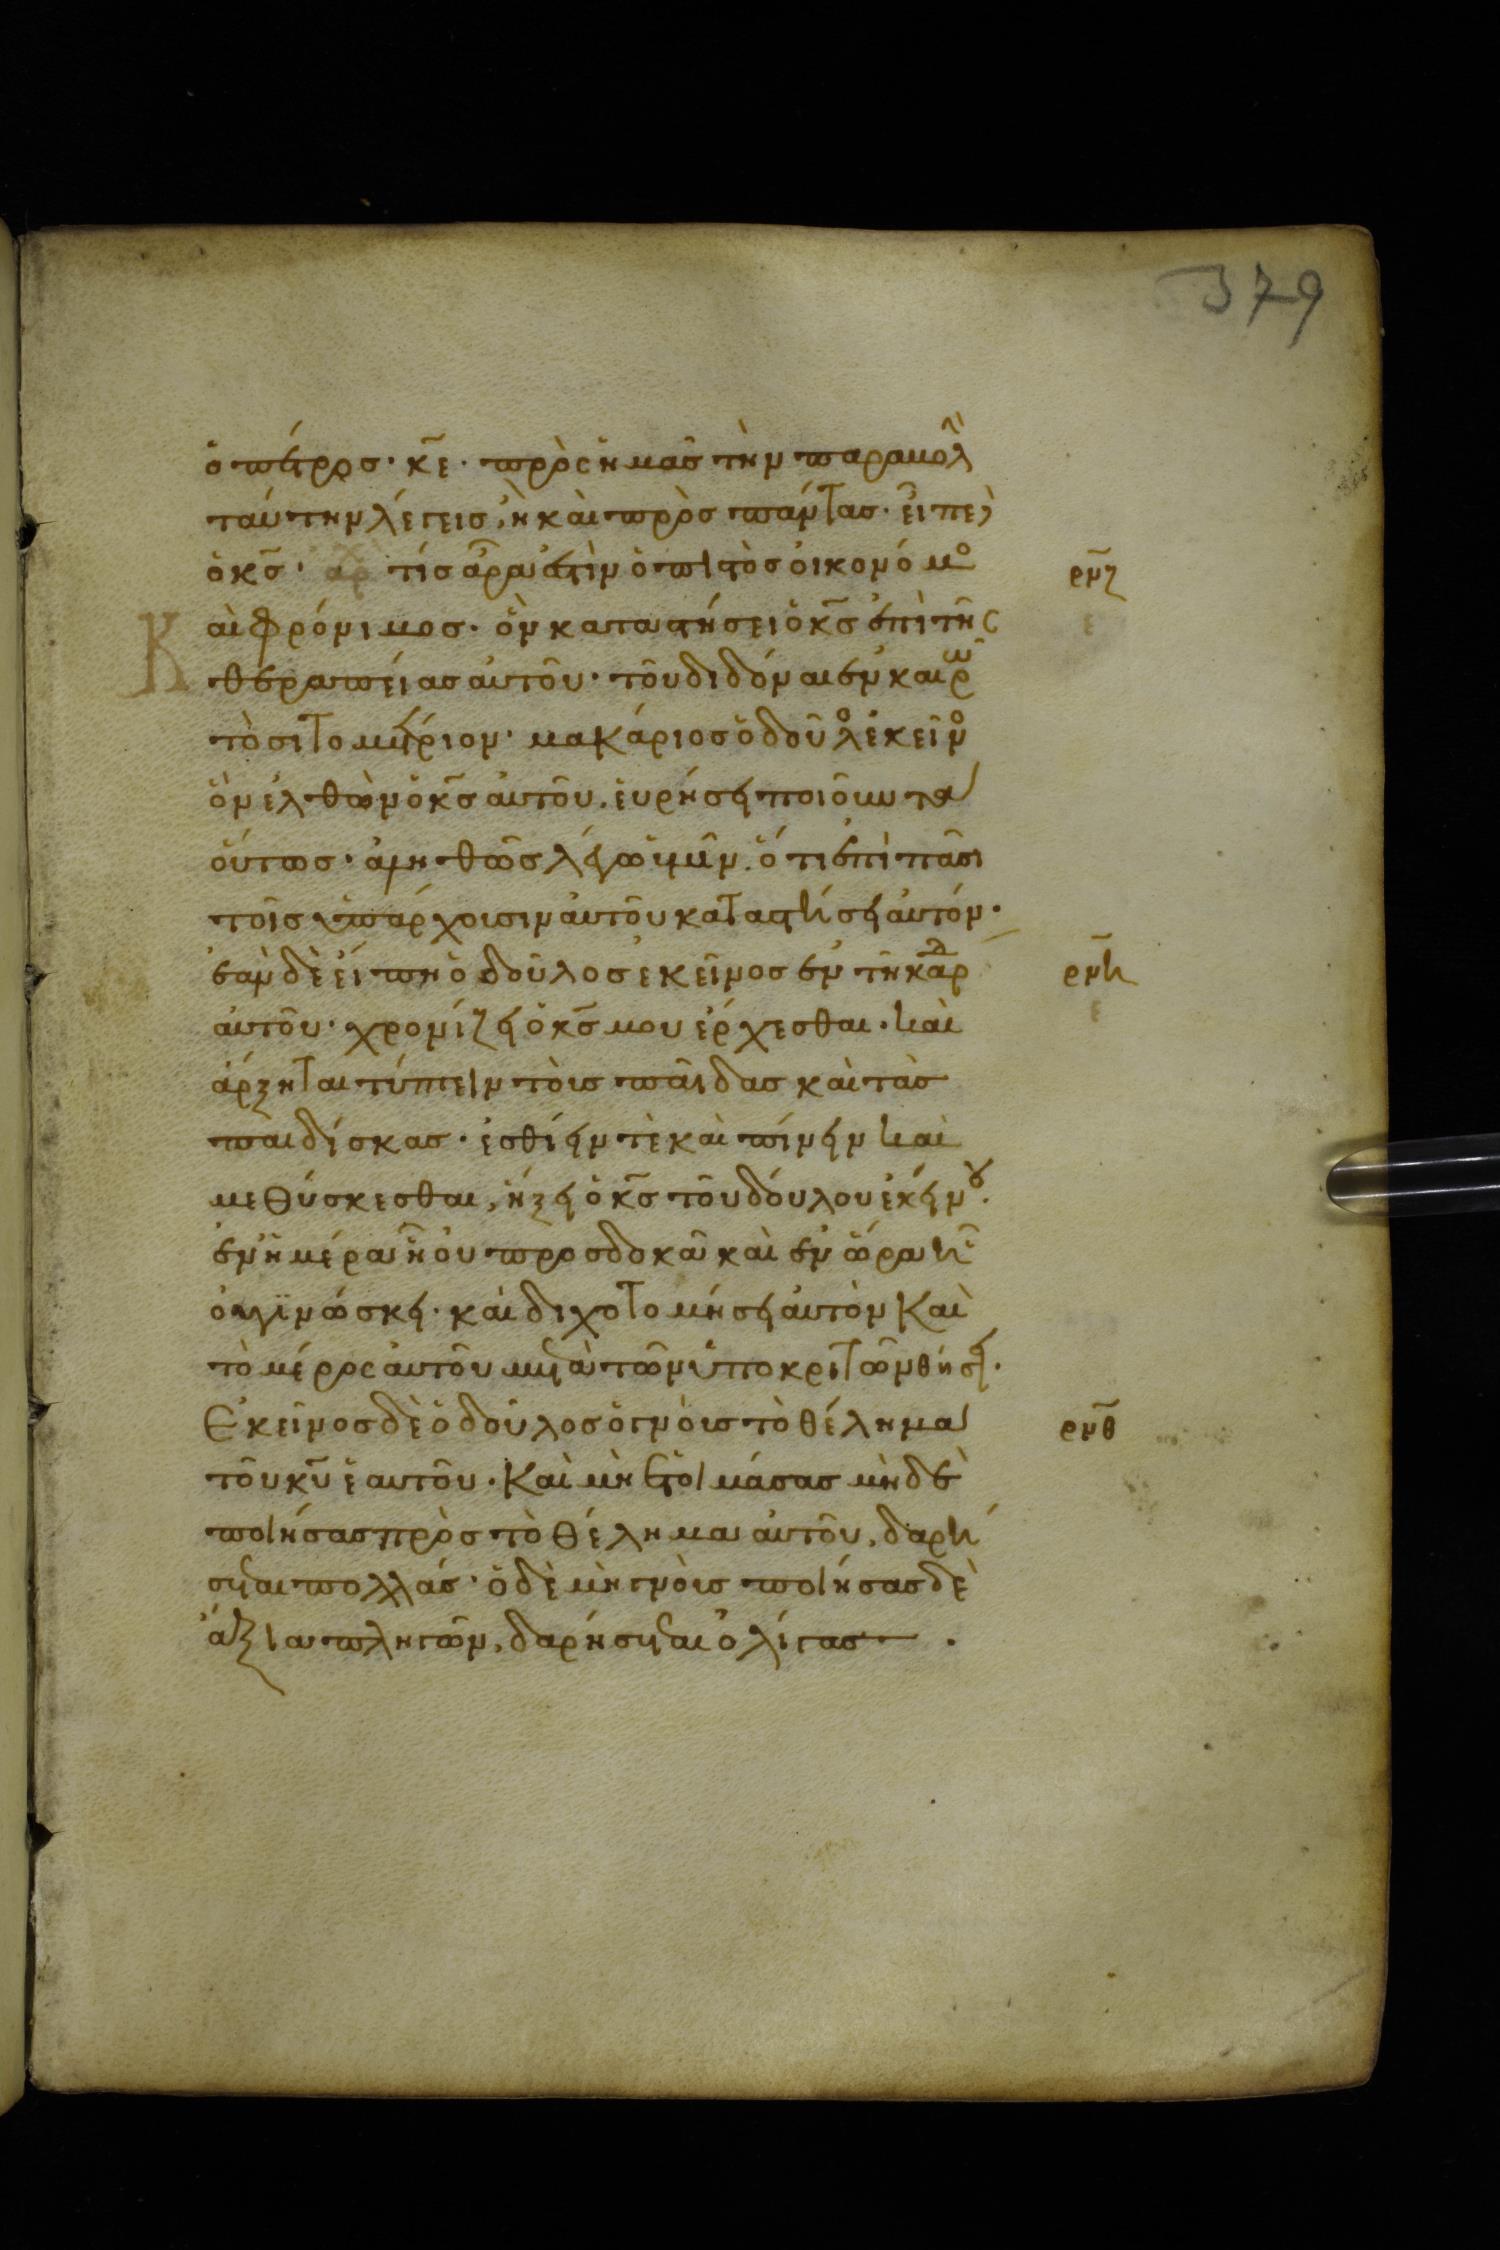 379
ὁ πέτρος· κ̅ε̅· πρὸς ἡμᾶς τὴν παραβολ
ταύτην λέγεις, ἢ καὶ πρὸς πάντας· εἶπε
ὁ κ̅ς̅· τίς ἄρα ἐστὶν ὁ πιστὸς οἰκονόμο
ρμζ
Καὶ φρόνιμος· ὃν καταστήσει ὁ κ̅ς̅ ἐπὶ τῆς
ε
θεραπείας αὐτοῦ· τοῦ διδόναι ἐν καιρῶ
τὸ σιτομέτριον· μακάριος ὁ δοῦλο ἐκεῖνο
ὃν ἐλθὼν ὁ κ̅ς̅ αὐτοῦ, εὑρήσει ποιοῦντα
οὕτως· ἀληθῶς λέγω ὑμῖν, ὅτι ἐπὶ πᾶσι
τοῖς ὑπάρχουσιν αὐτοῦ καταστήσει αὐτόν·
ἐὰν δὲ εἴπη ὁ δοῦλος ἐκεῖνος ἐν τῆ καρδ
ρμη
αὐτοῦ· χρονίζει ὁ κ̅ς̅ μου ἔρχεσθαι· καὶ
ε
ἄρξηται τύπτειν τοὺς παῖδας καὶ τὰς
παιδίσκας· ἐσθίειν τὲ καὶ πίνειν καὶ
μεθύσκεσθαι, ἥξει ὁ κ̅ς̅ τοῦ δούλου ἐκείνου·
ἐν ἡμέρα ἧ οὐ προσδοκᾶ καὶ ἐν ὥρα ἧ
οὐ γϊνώσκει· καὶ διχοτομήσει αὐτὸν καὶ
τὸ μέρος αὐτοῦ μετὰ τῶν ὑποκριτῶν θήσει·
Ἐκεῖνος δὲ ὁ δοῦλος ὁ γνοὺς τὸ θέλημα
ρμθ
τοῦ κ̅υ̅ ἑαυτοῦ· καὶ μὴ ἑτοιμάσας μὴδὲ
ποιήσας πρὸς τὸ θέλημα αὐτοῦ, δαρή
σεται πολλάς· ὁ δὲ μὴ γνοὺς ποιήσας δὲ
ἄξια πληγῶν, δαρήσεται ὀλίγας·